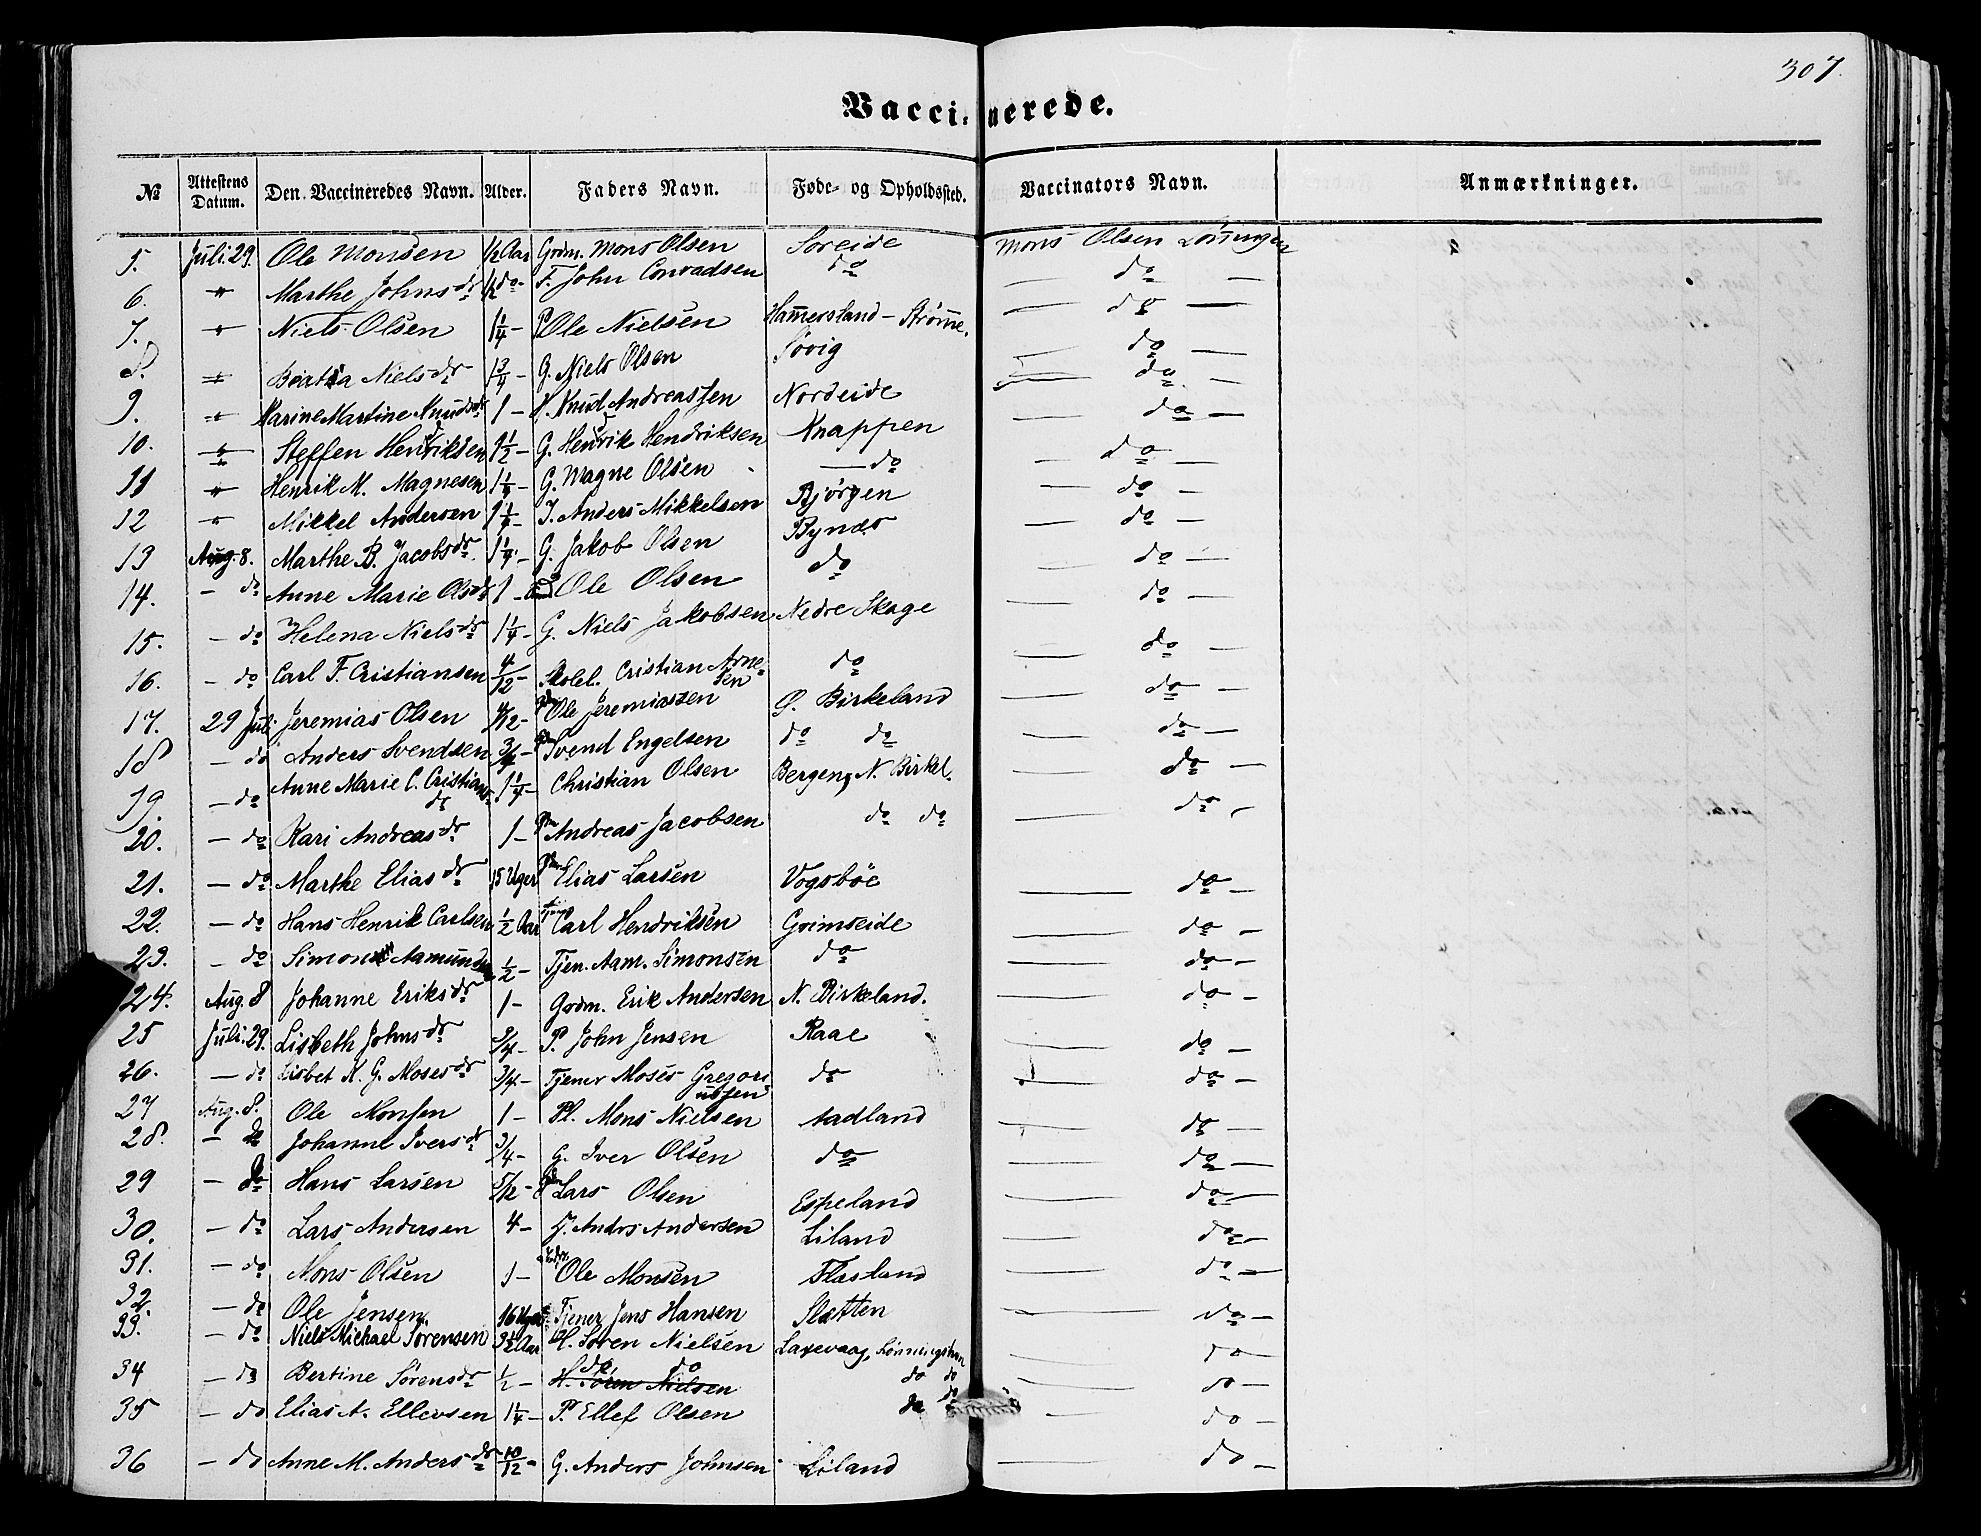 307.
Vaccinerede.
№ Attestens Datum. Den Vaccineredes Navn. Alder. Faders Navn. Føde- og Opholdssted. Vaccinators Navn. Anmærkninger.
5. Juli 29. Ole Monsen ½ Aar Grdm. Mons Olsen Søreide Mons Olsen
6. " Marthe Johnsdr ½ do F. John Conradsen do — do —
7. " Niels Olsen 1¼ - P. Ole Nielsen Hamersland - Strømme. — do —
8. " Nielsdr 1¾ - G. Niels Olsen Søvig — do —
9. " Karine Martine Knudsdr 1 - Knud Andreassen Nordeide — do —
10. " Steffen Henriksen 1½ - G. Henrik Hendriksen Knappen — do —
11 " Henrik M. Magnesen G. Magne Olsen — do — do —
12 " Mikkel Andersen 1¼ - J. Anders Mikkelsen Bjørgen — do —
13 Aug. 8. Marthe B. Jacobsdr 1¼ - G. Jakob Olsen Byndes — do —
14. - do Anne Marie Olsdr 1 - Ole Olsen do — do —
15. - do Helena Nielsdr 1¼ - G. Niels Jakobsen Nedre Skage — do —
16. - do Carl F. Cristiansen 4/12 - Skolel. Cristian Arnesen do — do —
17. 29 Juli Jeremias Olsen Ole Jeremiassen Ø. Birkeland — do —
18 - do Anders Svendsen 3/4 - Svend Engelsen do do — do —
19. - do Anne Marie C. Cristiansdr 1¼ - Christian Olsen Bergen, N. Birkel. — do —
20. - do Kari Andreasdr 1 - Andreas Jacobsen do do — do -
21. - do Marthe Eliasdr 15 Uger Elias Larsen Vogsböe — do —
22. - do Hans Henrik Carlsen ½ Aar Carl Hendriksen Grimseide — do —
23. - do Simon Aamunds ½ - Tjen. Aam. Simonsen do — do —
24. Aug. 8 Johanne Eriksdr 1 - Grdm. Erik Andersen N. Birkeland. — do —
25 Juli. 29. Lisbeth Johnsdr 3/4 - P. John Jensen Raae — do —
26. - do Lisbet K. G. Mosesdr 3/4 - Tjener Moses Gregoriussen do — do —
27 Aug. 8. Ole Monsen 1 - Pl. Mons Nielsen Aadland — do —
28. - do Johanne Iversdr 3/4 - G. Iver Olsen do — do —
29 - do Hans Larsen 5/12 - Lars Olsen Espeland — do —
30. - do Lars Andersen 4 - Andrs Andersen Liland — do —
31. - do Mons Olsen 1 - Ole Monsen Flesland — do —
32. - do Ole Jensen 16 Uger Tjener Jens Hansen Sletten — do —
33. - do Niels Michael Sørensen 3½ Aar H. Søren Nielsen Laxevaag, — do —
34 - do Bertine Sørensdr ½ - H. Søren Nielsen do do do do — do —
35 - do Elias A. Ellevsen 1¼ - P. Ellef Olsen do do — do —
36 - do Anne M. Andersdr 10/12 - G. Anders Johnsen Liland — do —